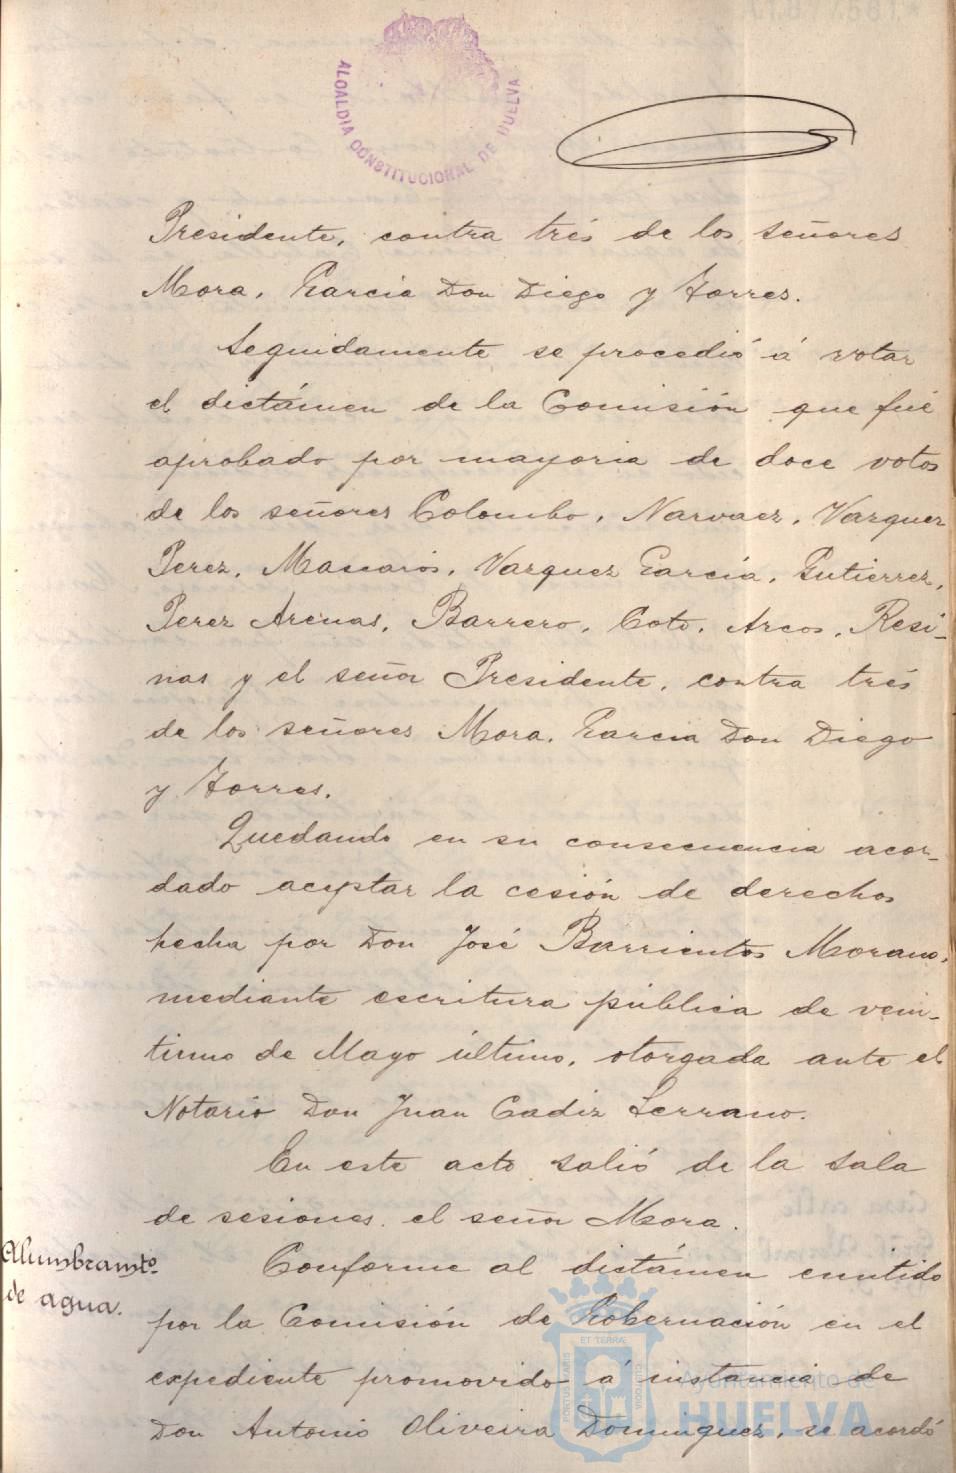 ALCALDIA CONSTITUCIONAL DE HUELVA
Presidente, contra trés de los señores
Mora, Garcia Don Diego y Torres.
Seguidamente se procedió á votar
el dictámen de la Comisión que fué
aprobado por mayoria de doce votos
de los señores Colombo, Narvaez, Vazquez
Perez, Mascarós, Vazquez García, Gutierrez,
Perez Arenas, Barrero, Coto, Arcos, Resi-
nas y el señor Presidente, contra trés
de los señores Mora, Garcia Don Diego
y Torres.
Quedando en su consecuencia acor-
dado aceptar la cesión de derechos
hecha por Don José Barrientos Morano,
mediante escritura pública de vein-
tiuno de Mayo último, otorgada ante el
Notario Don Juan Cadiz Serrano.
En este acto salió de la sala
de sesiones el señor Mora.
Alumbramto.
de agua.
Conforme al dictámen emitido
por la Comisión de Gobernación en el
expediente promovido á instancia de
Don Antonio Oliveira Dominguez, se acordó
ET TERRÆ
PORTUS MARIS
CUSTODIA
Ayuntamiento de
HUELVA